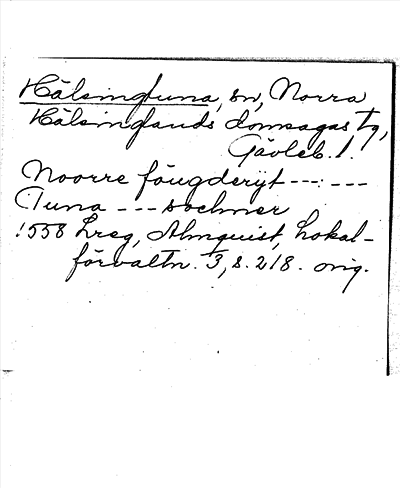 Hälsingtuna, sn, Norra
Hälsinglands domsagas tg,
Gävleb. l.
Noorre fougderijt --- ---
Tuna --- sochner
1558 Lreg, Almquist, Lokal-
förvaltn. 3, s. 218. orig.